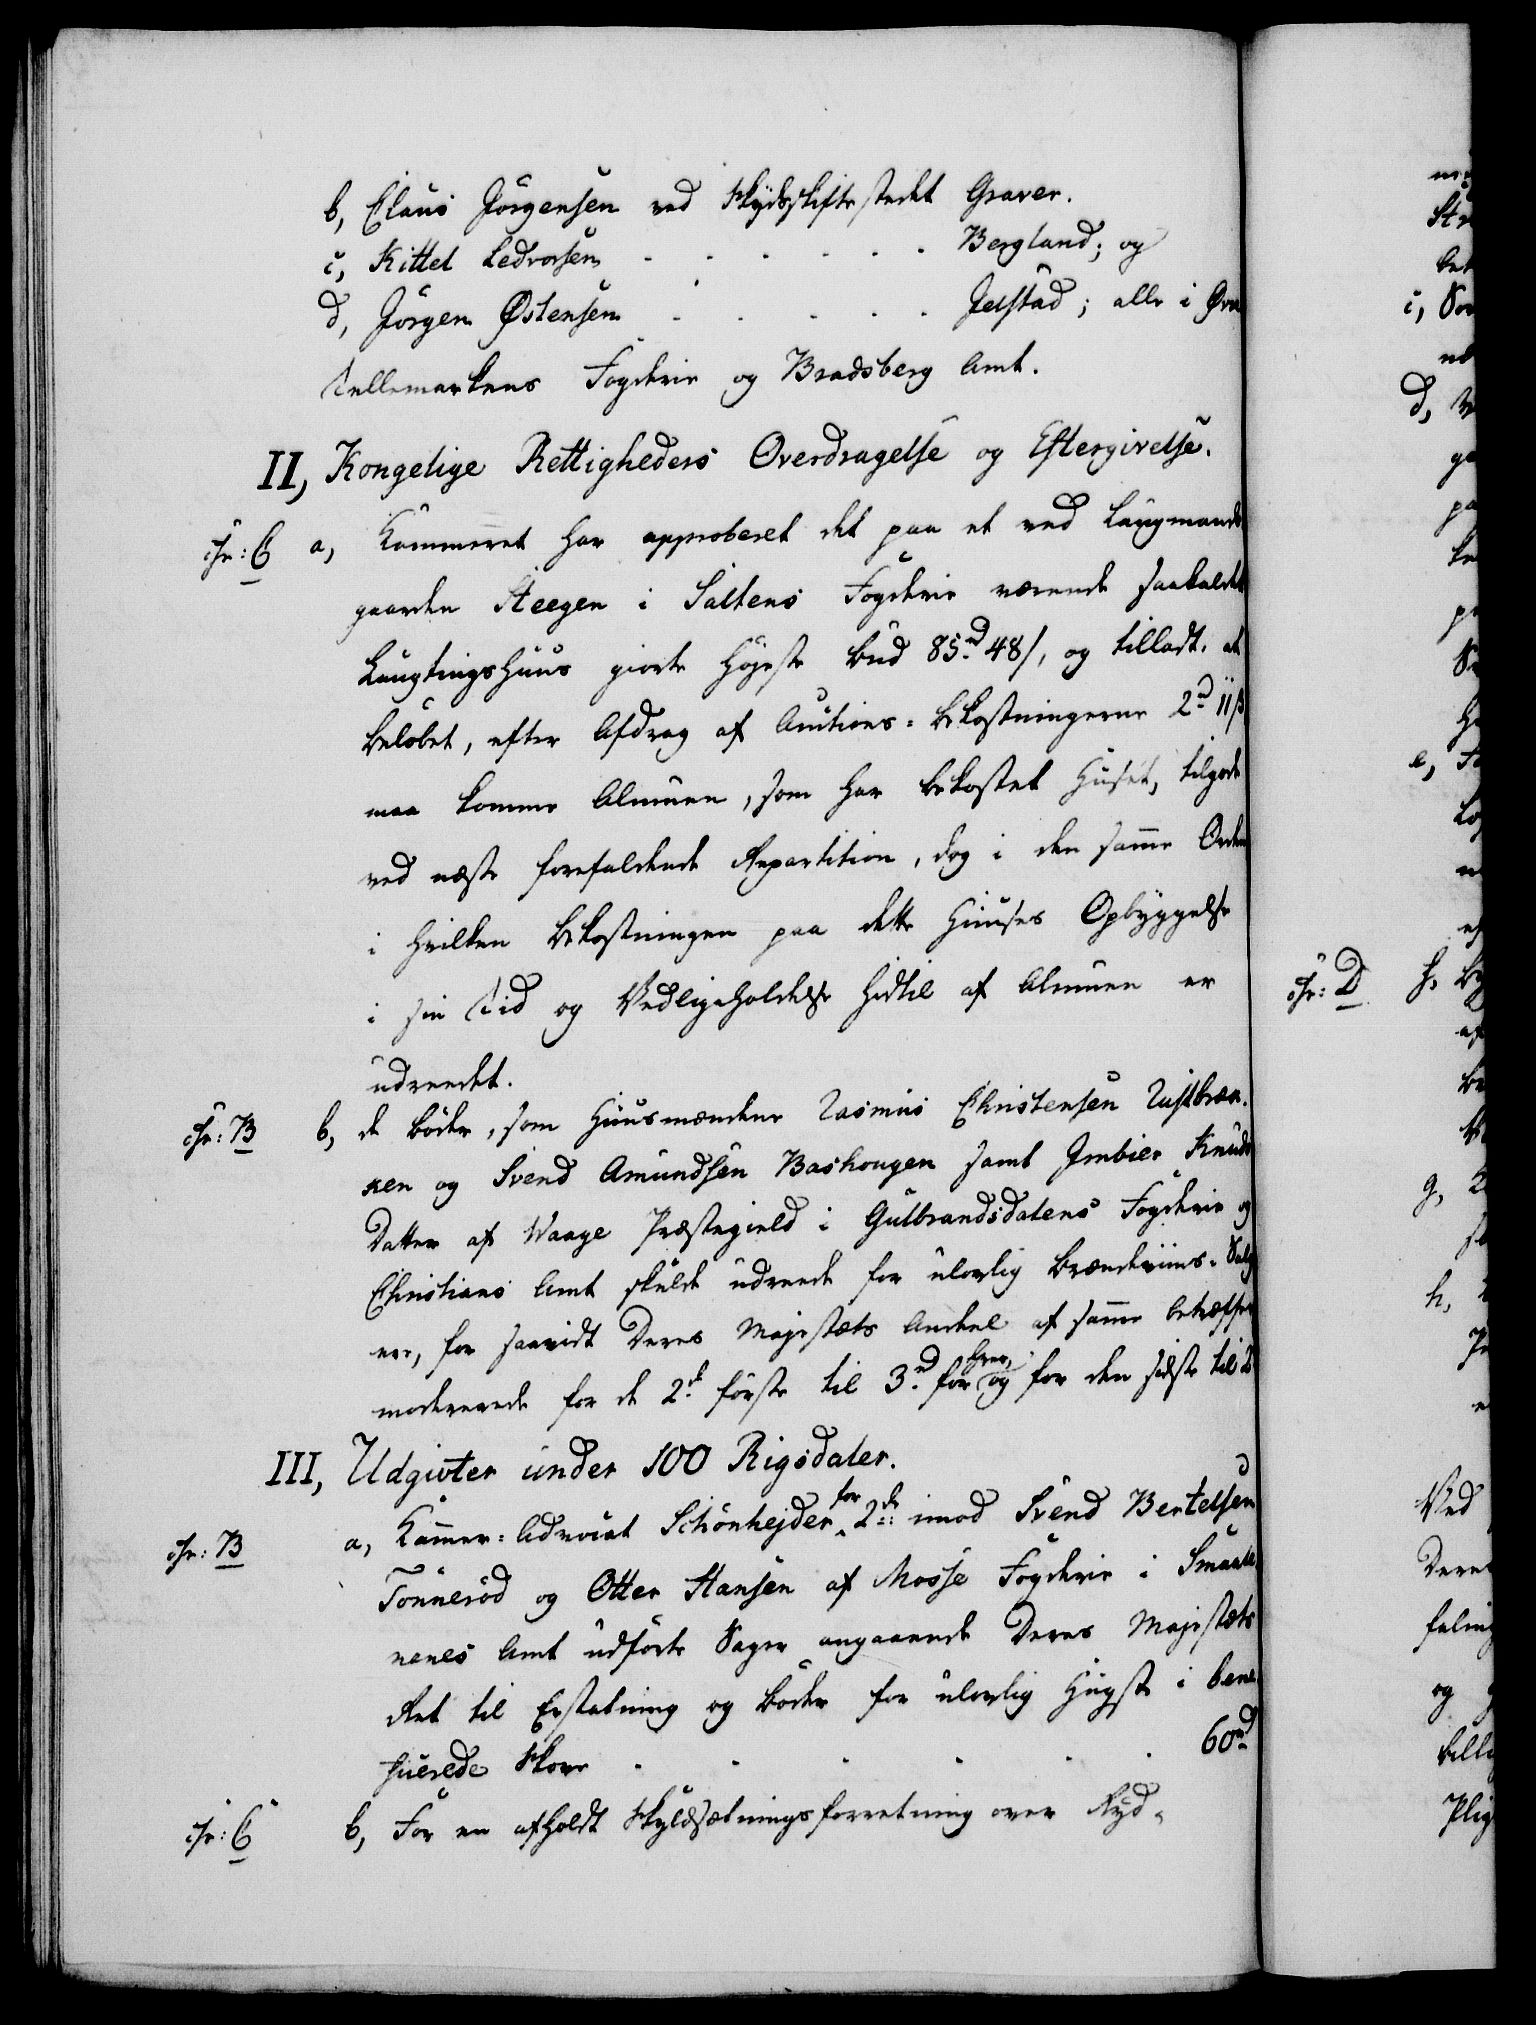 b, Claus Jörgensen ved Skydsskiftestedet Graver.
c, Kittel Ledvorsen - - - - - - Bergland; og
d, Jörgen Østensen - - - - - Jelstad; alle i Øvre
Tellemarkens Fogderie og Bradsberg Amt.
II, Kongelige Rettigheders Overdragelse og Eftergivelse.
chr: C a, Kammeret har approberet det paa et ved Laugmands
gaarden Steegen i Saltens Fogderie værende saakaldet
Laugtingshuus giorte höjeste bud 85 rd 48 s, og tilladt, at
belöbet, efter Afdrag af Auctions-bekostningerne 2 rd 11 ß
maa komme Almuen, som har bekostet Huset, tilgode
ved næste forefaldende Repartition, dog i den samme Orden
i hvilken bekostningen paa dette Huuses Opbyggelse
i sin Tid og Vedligeholdelse hidtil af Almuen er
udreedet.
chr: B b, de böder, som Huusmændene Rasmus Christensen Rustbræk-
ken og Svend Amundsen Bashougen samt Imbier Knuds
Datter af Waage Præstegield i Gulbrandsdalens Fogderie og
Christians Amt skulde udreede for ulovlig brændeviins-Salg
ere, for saavidt Deres Majestæts Andeel af samme betræffer
modererede for de 2de förste til 3 rd for hver, og for den sidste til 2
III, Udgivter under 100 Rigsdaler.
chr: B a, Kammer-Advocat Schönhejder for 2de imod Svend Bertelsen
Tönneröd og Otter Hansen af Mosse Fogderie i Smaale
nenes Amt udförte Sager angaaende Deres Majestæts
Ret til Erstatning og böder for ulovlig Hugst i bene
ficerede Skove - - - - - 60 rd
chr: C b, For en afholdt Skyldsætningsforretning over Ryd-
chr: D